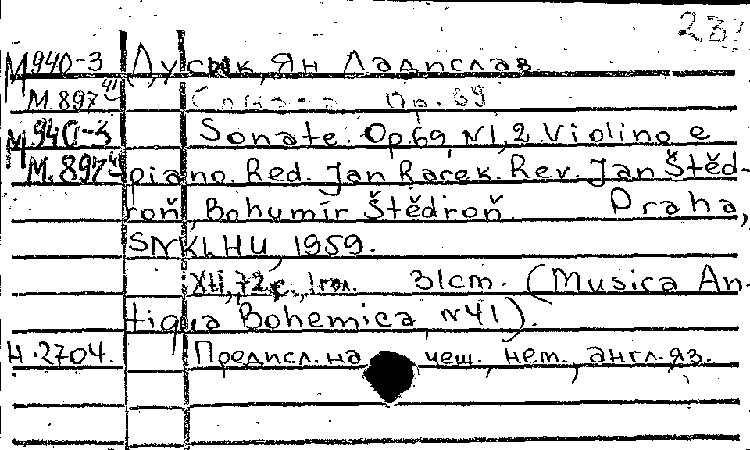 23
М940-3 Дусык, Ян Ладислав
М.897 41 Соната Op. 69
М940-3 Sonate. Op 69, N1,2 Violino e
М.897 41 piano. Red. Jan Raček. Rev. Jan Štěd-
roň, Bohumír Štědroň. Praha,
SNKLHU, 1959.
XII, 72 с., 31cm. (Musica An-
tiqua Bohemica, N41).
Н.2704. Предисл. на чеш., нем., англ. яз.